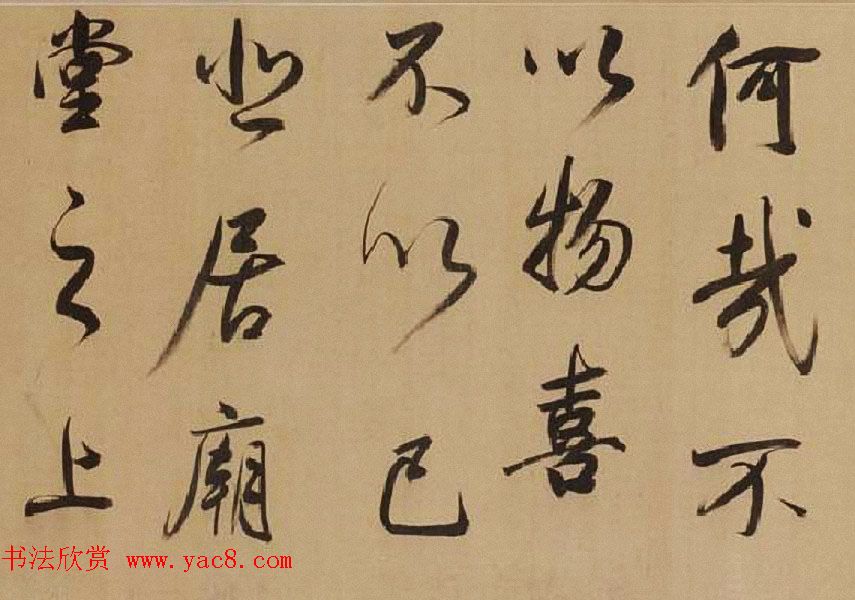 何哉不
以物喜
不以己
悲居廟
堂之上
书法欣赏 www.yac8.com